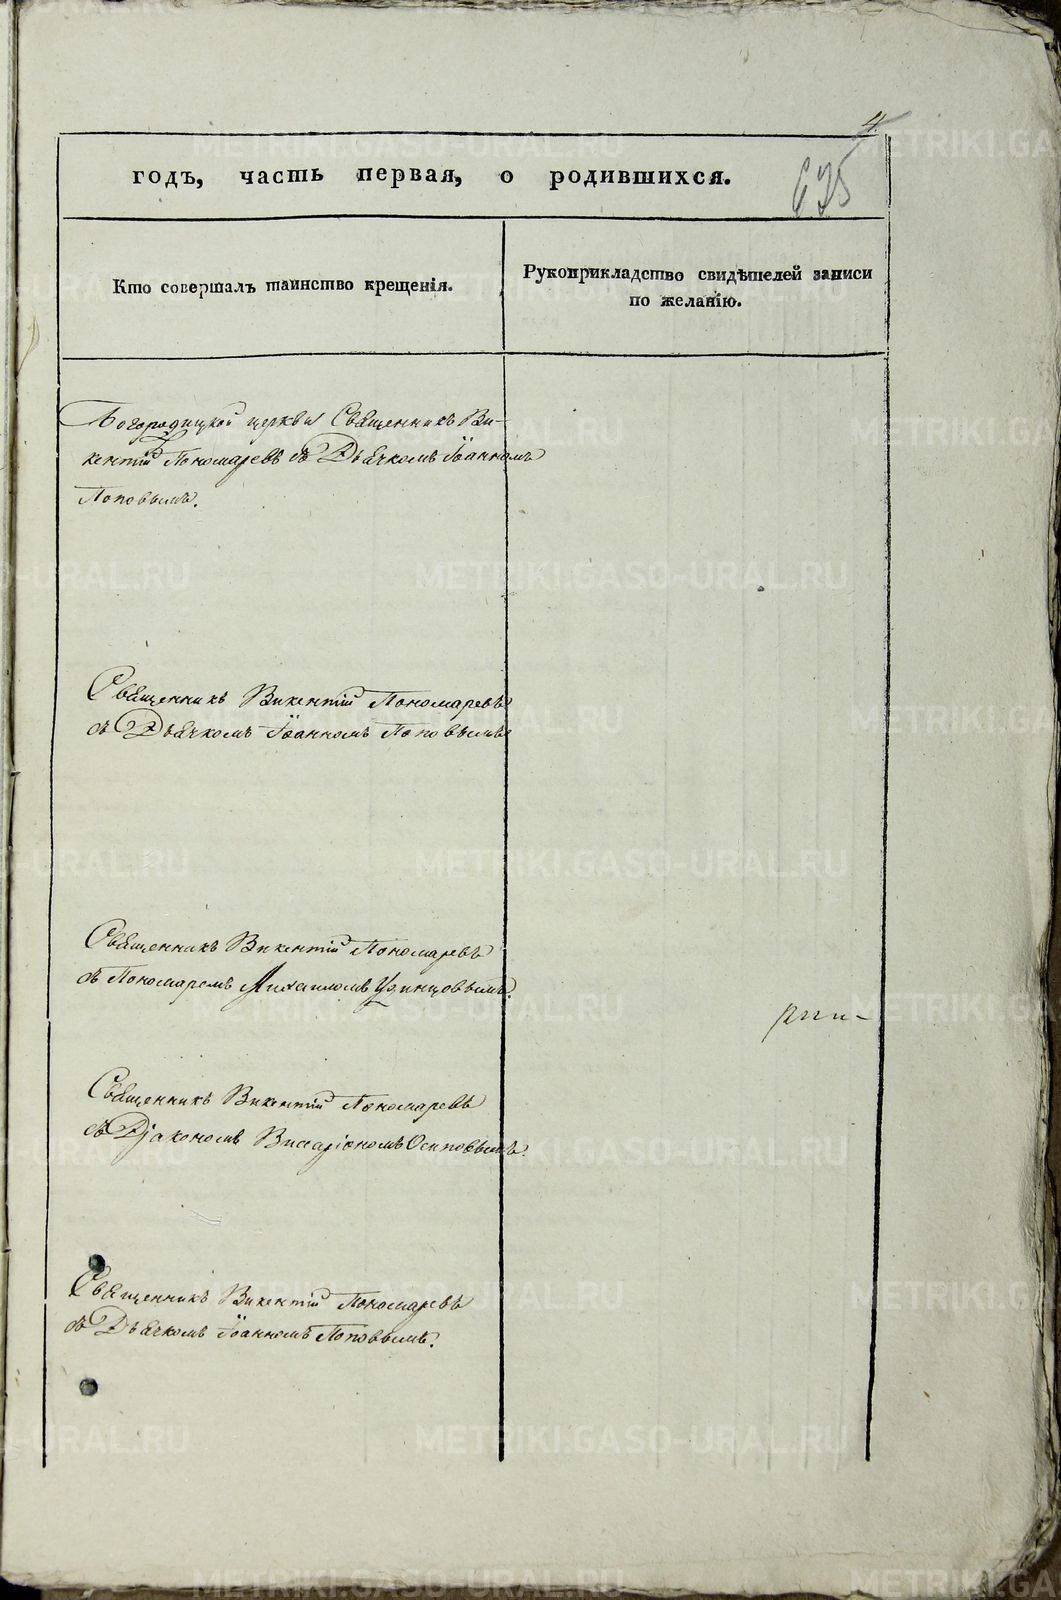 4.
635
годъ, часть первая, о родившихся.
Кто совершалъ таинство крещенія.
Рукоприкладство свидѣтелей записи
по желанію.
Богородицкой церкви Священникъ Ви-
кентій Пономаревъ съ Дьячкомъ Іоанномъ
Поповымъ.
Священникъ Викентій Пономаревъ
съ Дьячкомъ Іоанномъ Поповымъ
Священникъ Викентій Пономаревъ
съ Пономаремъ Михаиломъ Удинцовымъ.
Священникъ Викентій Пономаревъ
съ Діакономъ Висаріономъ Осиповымъ.
Священникъ Викентій Пономаревъ
съ Дьячкомъ Іоанномъ Поповымъ.
METRIKI.GASO-URAL.RU